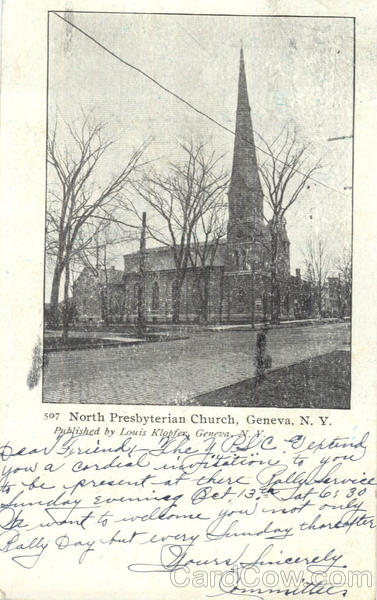 507 North Presbyterian Church, Geneva, N. Y.
Published by Louis Klopfer, Geneva, N. Y.
Dear Friend, The Y.P.S.C.E extend
you a cordial invitation to you
to be present at there Rally Service
Sunday evening Oct 13th at 6; 30
We want to welcome you not only
Rally Day but every Sunday thereafter
Yours Sincerely
Committee
CardCow.com